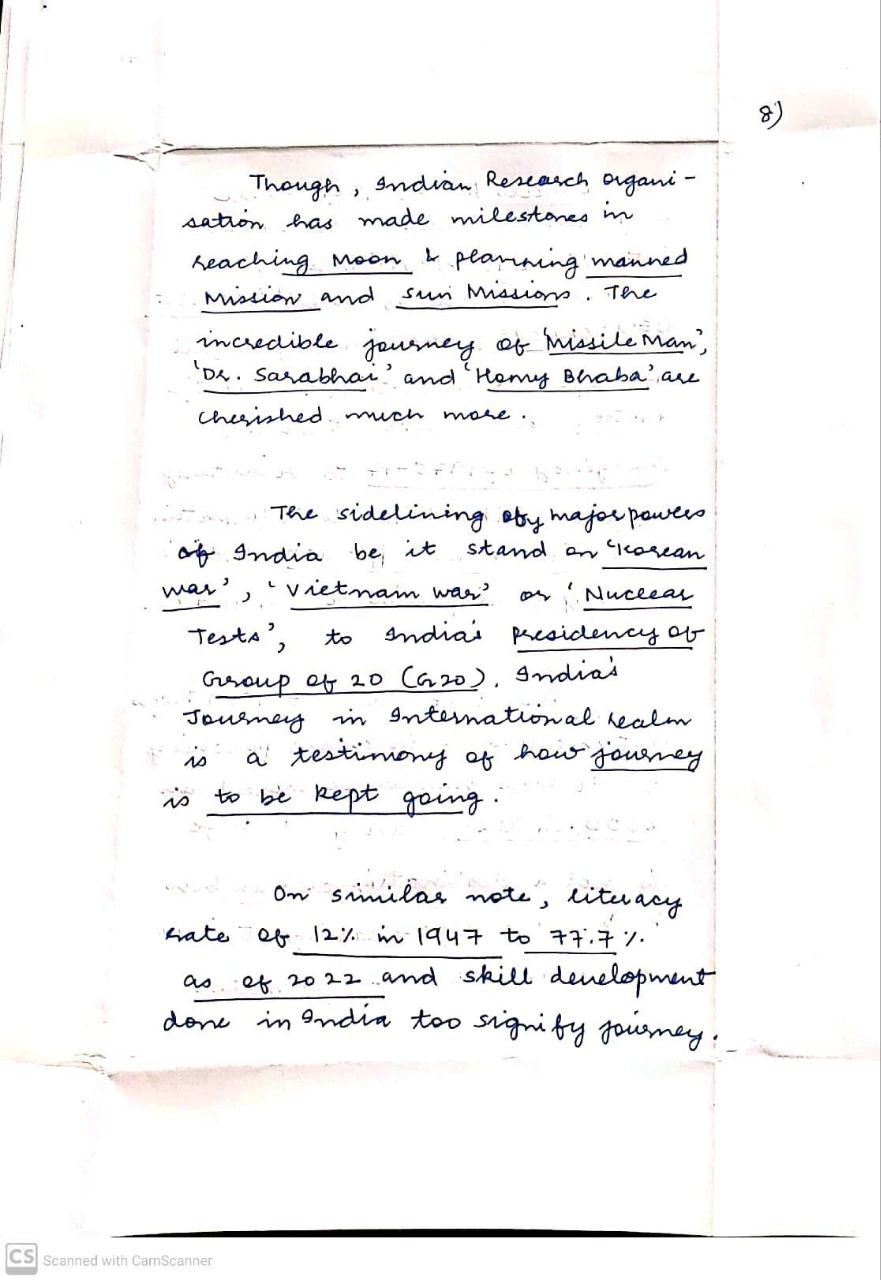 8)
Though, Indian Research organi-
sation has made milestones in
reaching Moon & planning manned
Mission and sun Missions. The
incredible journey of 'Missile Man',
'Dr. Sarabhai' and 'Homy Bhaba' are
cherished much more.
The sidelining by major powers
of India be it stand on 'Korean
war', 'Vietnam war' or 'Nuclear
Tests', to India's presidency of
Group of 20 (G20). India's
Journey in International realm
is a testimony of how journey
is to be kept going.
On similar note, literacy
rate of 12% in 1947 to 77.7%
as of 2022 and skill development
done in India too signify journey.
CS Scanned with CamScanner